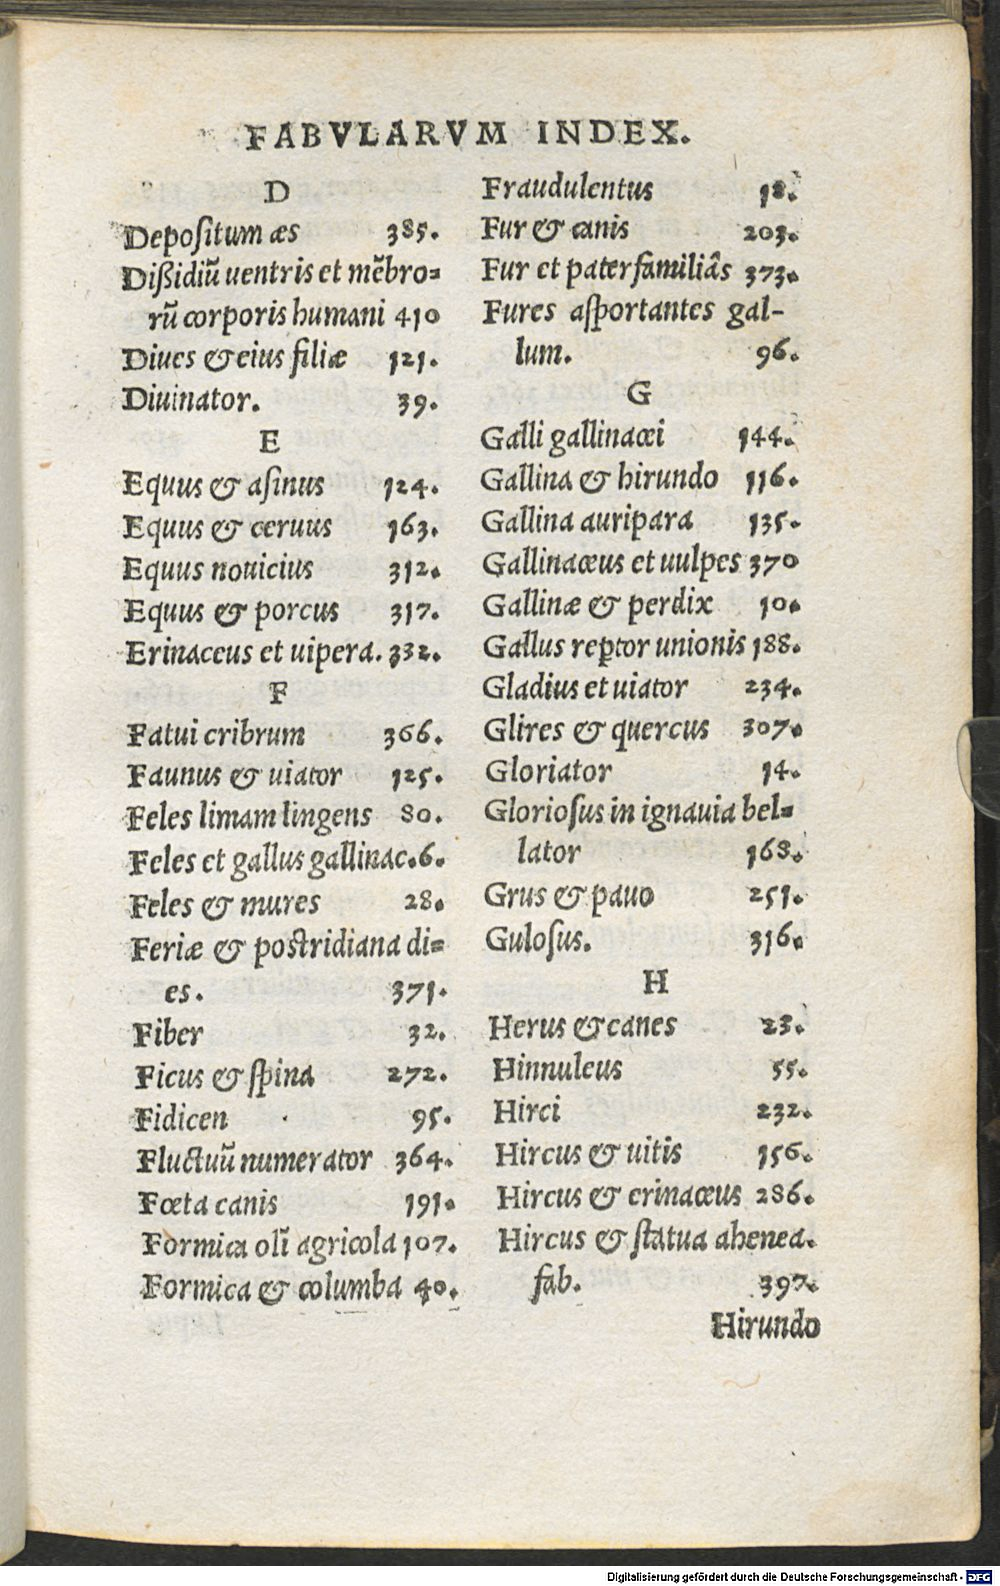 FABVLARVM INDEX.
D
Depoſitum æs 385.
Dißidiũ uentris et mẽbro=
rũ corporis humani 410
Diues & eius filiæ 121.
Diuinator. 39.
E
Equus & aſinus 124.
Equus & ceruus 163.
Equus nouicius 312.
Equus & porcus 317.
Erinaceus et uipera. 332.
F
Fatui cribrum 366.
Faunus & uiator 125.
Feles limam lingens 80.
Feles et gallus gallinac. 6.
Feles & mures 28.
Feriæ & postridiana di=
es. 371.
Fiber 32.
Ficus & ſpina 272.
Fidicen 95.
Fluctuũ numerator 364.
Fœta canis 191.
Formica olĩ agricola 107.
Formica & columba 40.
Fraudulentus 18.
Fur & canis 203.
Fur et paterfamiliâs 373.
Fures aſportantes gal-
lum. 96.
G
Galli gallinacei 144.
Gallina & hirundo 116.
Gallina auripara 135.
Gallinaceus et uulpes 370
Gallinæ & perdix 10.
Gallus reꝑtor unionis 188.
Gladius et uiator 234.
Glires & quercus 307.
Gloriator 14.
Glorioſus in ignauia bel=
lator 168.
Grus & pauo 251.
Guloſus. 316.
H
Herus & canes 23.
Hinnuleus 55.
Hirci 232.
Hircus & uitis 156.
Hircus & erinaceus 286.
Hircus & ſtatua ahenea.
fab. 397.
Hirundo
Digitalisierung gefördert durch die Deutsche Forschungsgemeinschaft - DFG